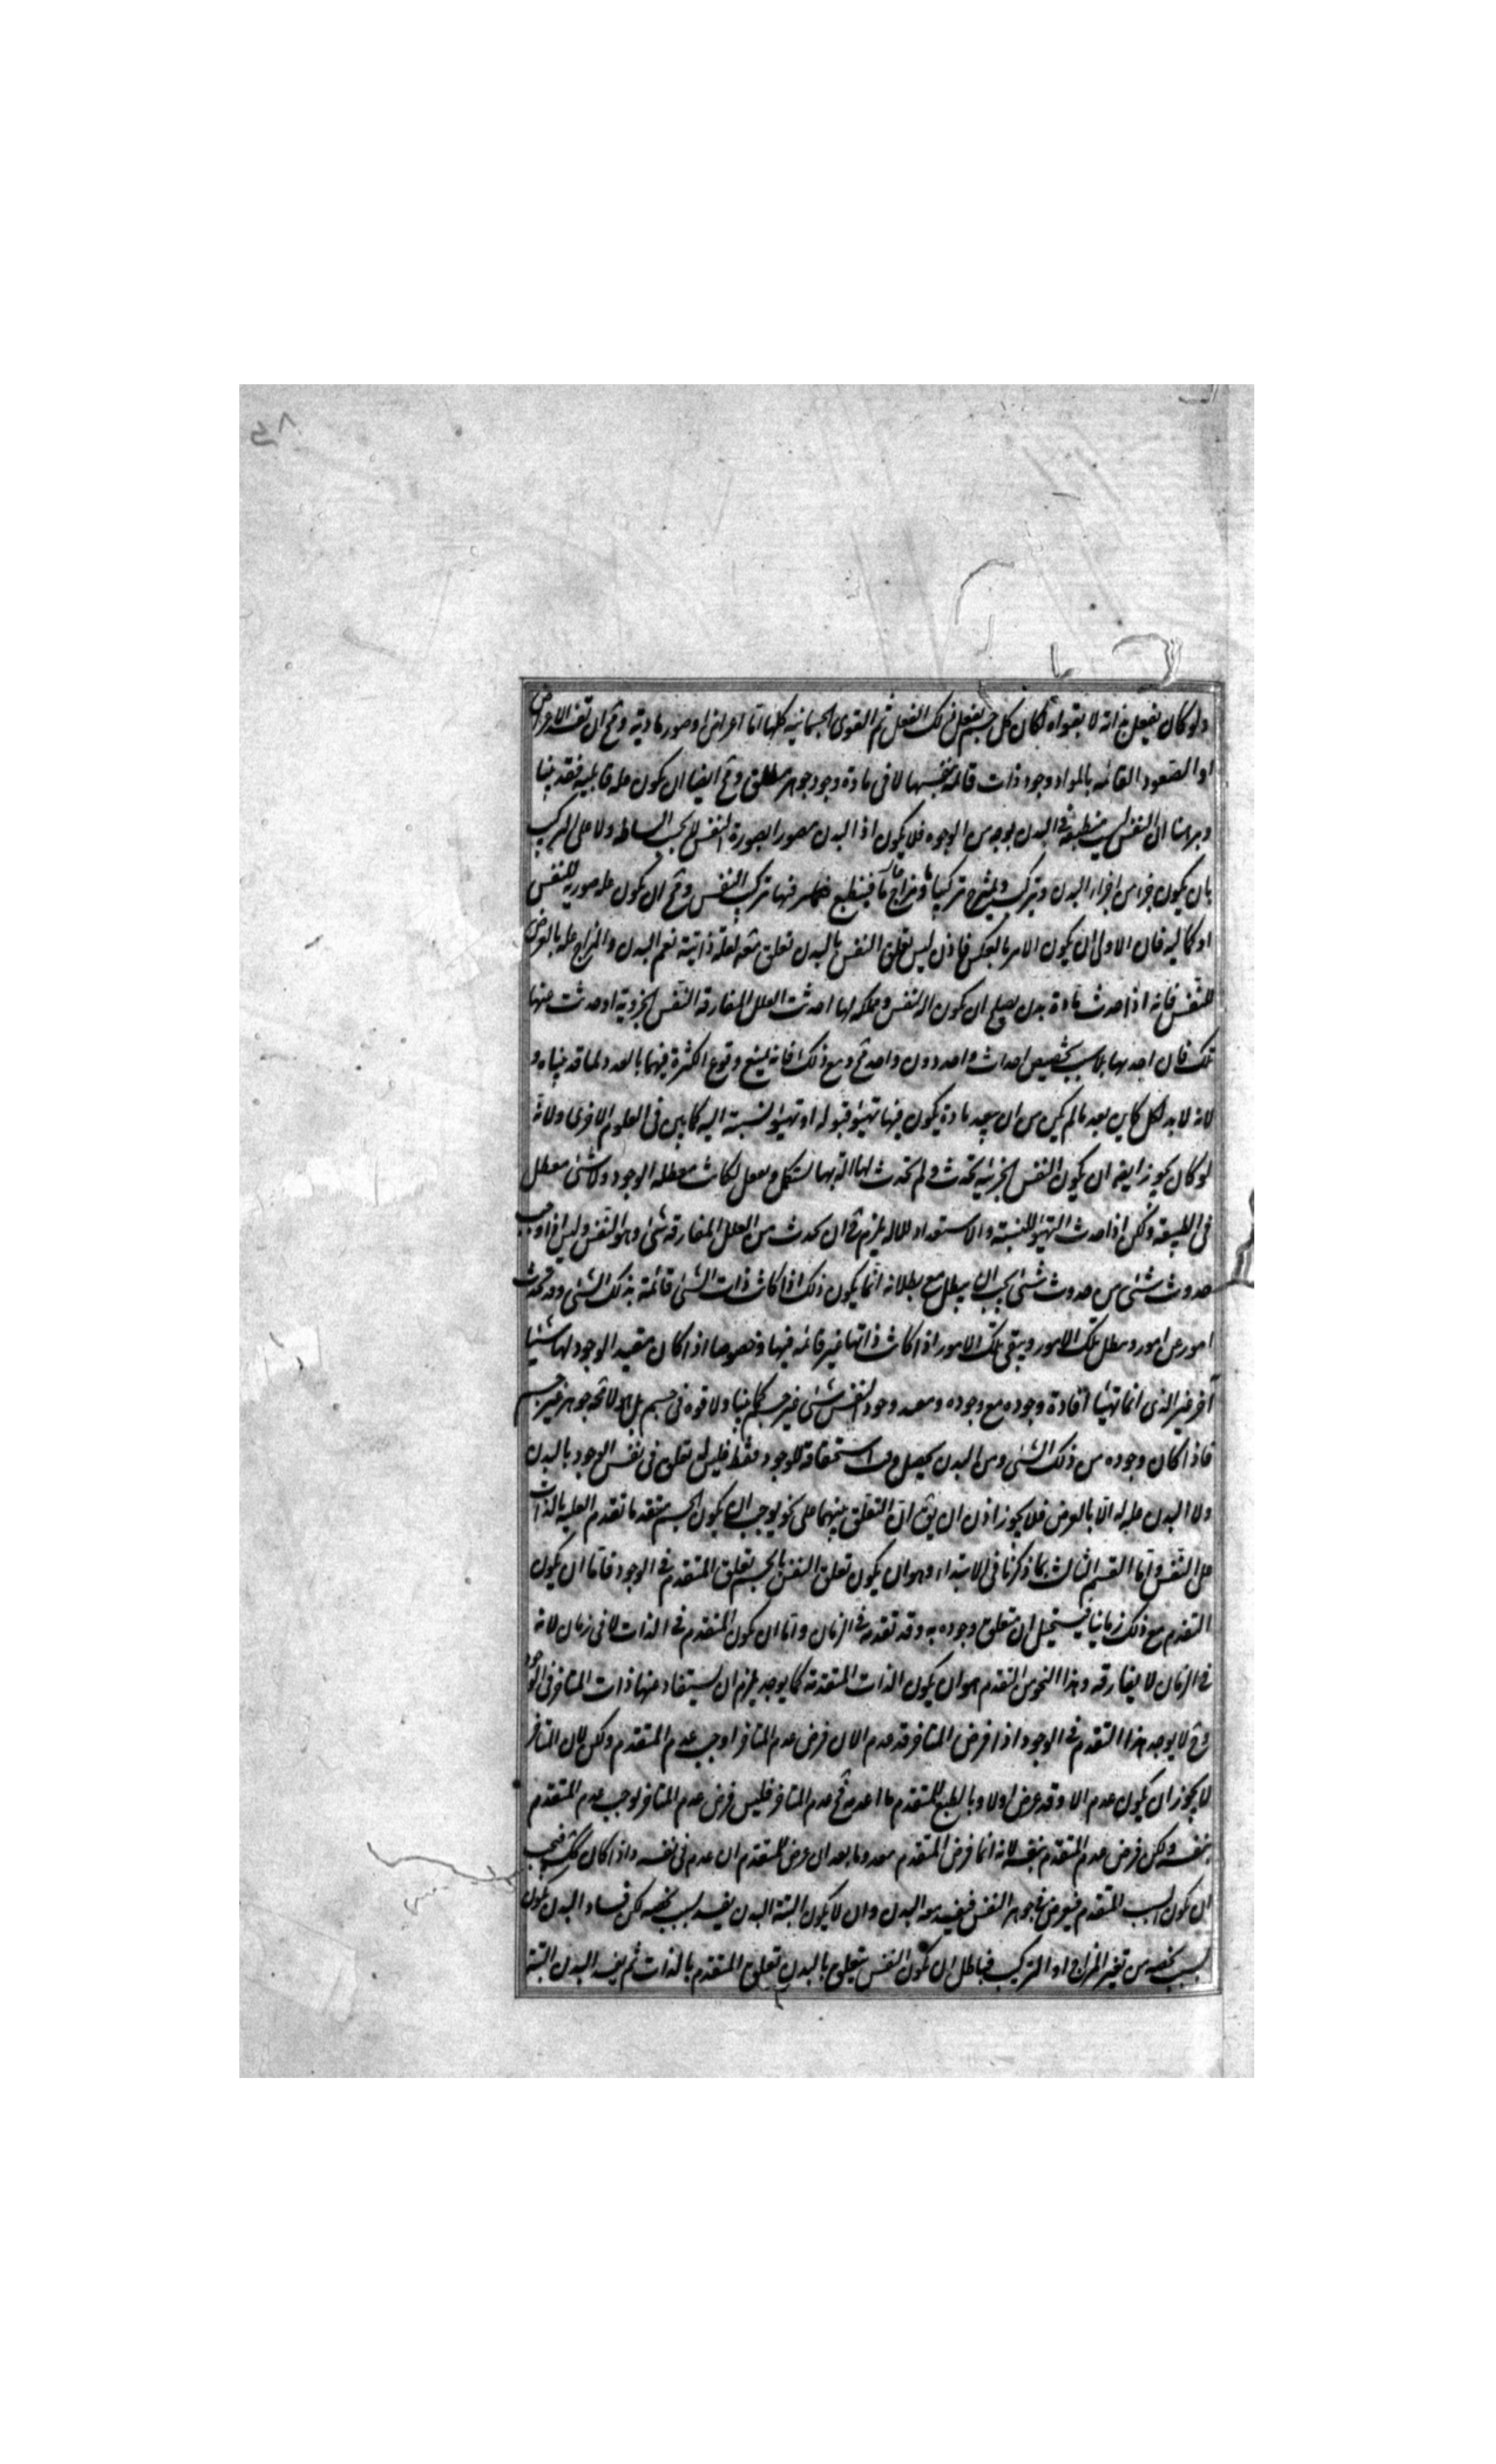 ولو كان يفعل بذاته لا بقواه لكان كل جسم يفعل ذلك الفعل ثم القوى الجسمانية كلها اما اعراض او صور مادية ومح ان تفيد الاعراض
او الصور القائمة بالمواد وجود ذات قائمة بنفسها لا فى مادة ووجود جوهر مطلق ومح ايضا ان يكون علة قابلية فقد بينا
وبرهنا ان النفس ليست منطبعة فى البدن بوجه من الوجوه فلا يكون اذا البدن مصورا بصورة النفس لا بحسب البساطه ولا على التركيب
بان يكون جزا من اجزاء البدن وتتركب وتمتزج تركيبا ما ومزاجا ما فينطبع فيها تركب النفس ومح ان يكون علة صورية للنفس
او كمالية فان الاولى ان يكون الامر بالعكس فاذن ليس تعلق النفس بالبدن تعلق بعلة ذاتية نعم البدن والمزاج علة بالعرض
للنفس فانه اذا حدث مادة بدن يصلح ان يكون الة النفس ومملكة لها احدثت العلل المفارقة النفس الجزوية او حدثت عنها
تلك فان احداثها بلا سبب يخصص احداث واحد دون واحد مح ومع ذلك فانه يمنع وقوع الكثرة فيها بالعدد لما قد بيناه و
لانه لا بد لكل كاين بعد مالم يكن من ان يتقدمه مادة يكون فيها تهيؤ قبوله او تهيؤ نسبة اليه كما تبين فى العلوم الاخرى ولانه
لو كان يجوز ايضا ان يكون النفس الجزئية تحدث ولم تحدث لها الة بها تستكمل وتفعل لكانت معطلة الوجود ولا شئ معطل
فى الطبيعة ولكن اذا حدث التهيؤ للنسبة والاستعداد للالة يلزم ح ان يحدث من العلل المفارقة شئ وهو النفس وليس اذا وجب
حدوث شئ من حدوث شئ يجب ان يبطل مع بطلانه انما يكون ذلك اذا كانت ذات الشئ قائمة بذلك الشئ وقد تحدث
امور عن امور وتبطل تلك الامور وتبقى تلك الامور اذا كانت ذاتها غير قائمة فيها وخصوصا اذا كان مفيد الوجود لها شيئا
آخر غير الذى انما تهيئا افادة وجوده مع وجوده ومفيد وجود النفس شئ غير جسم كما بينا ولا قوة فى جسم بل هو لا محة جوهر غير جسم
فاذا كان وجوده من ذلك الشئ ومن البدن يحصل وقت استحقاقه للوجود فقط فليس له تعلق فى نفس الوجود بالبدن
ولا البدن علة له الا بالعرض فلا يجوز اذن ان يق ان التعلق بينهما على نحو يوجب ان يكون الجسم متقدما تقدم العلية بالذات
على النفس واما القسم الثالث مما ذكرنا فى الابتداء وهو ان يكون تعلق النفس بالجسم تعلق المتقدم فى الوجود فاما ان يكون
التقدم مع ذلك زمانيا فيستحيل ان يتعلق وجوده به وقد تقدمه فى الزمان واما ان يكون المتقدم فى الذات لا فى زمان لانه
فى الزمان لا يفارقه وهذا النحو من التقدم هو ان يكون الذات المتقدمة كما يوجد يلزم ان يستفاد عنها ذات المتاخر فى الوجود
وح لا يوجد هذا المتقدم فى الوجود اذا فرض المتاخر قد عدم لا ان فرض عدم المتاخر اوجب عدم المتقدم ولكن لان المتاخر
لا يجوز ان يكون عدم الا وقد عرض اولا وبالطبع للمتقدم ما اعدمه فح عدم المتاخر فليس فرض عدم المتاخر يوجب عدم المتقدم
بنفسه ولكن فرض عدم المتقدم بنفسه لانه انما فرض المتقدم معدوما بعد ان عرض للمتقدم ان عدم فى نفسه واذا كان كك فيجب
ان يكون السبب المتقدم فيعرض فى جوهر النفس فيفسد معه البدن وان لا يكون البتة البدن يفسد بسبب يخصه لكن فساد البدن يكون
بسبب يخصه من تغير المزاج او التركيب فباطل ان يكون النفس يتعلق بالبدن تعلق المتقدم بالذات ثم يفسد البدن البتة